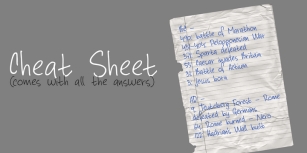 Cheat Sheet
(comes with all the answers)
BC
490 Battle of Marathon
431-404 Peloponnesian War
371 Sparta defeated
55 Caesar invades Britain
31 Battle of Actium
Jesus born
AD
9 Teutoburg Forest - Rome
defeated by Germans
64 Rome burned - Nero
122 Hadrians Wall built